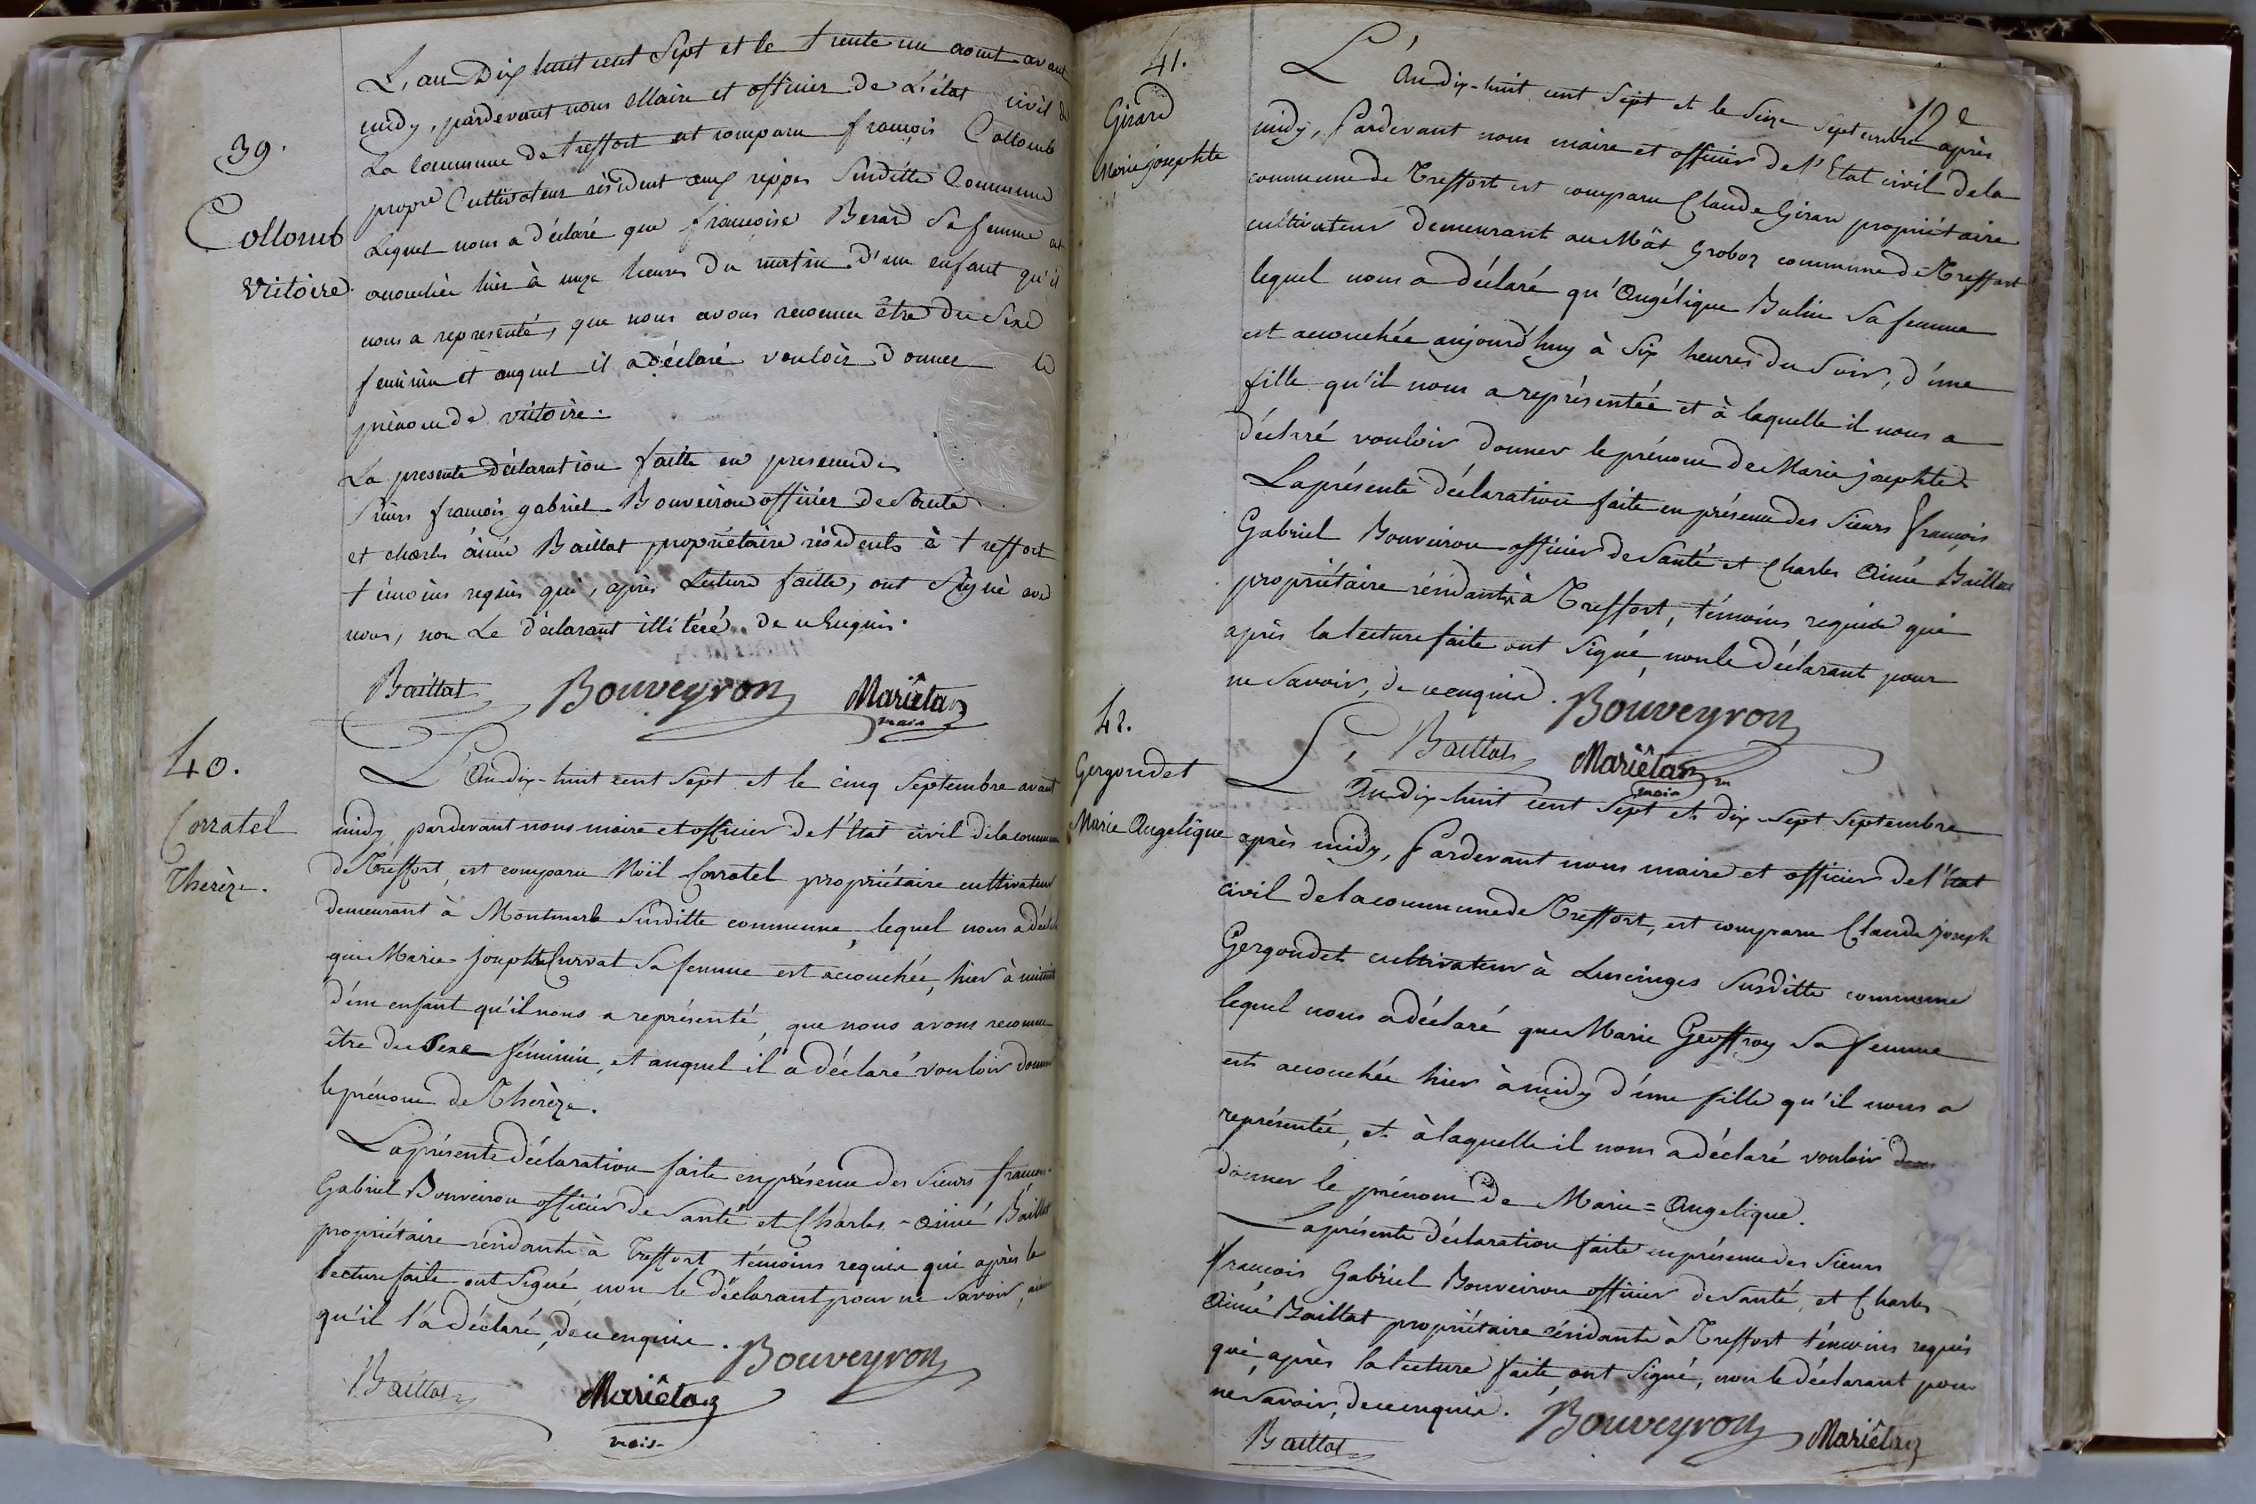 39.
Collomb
Victoire.
L'an Dix huit cent Sept et le trente un aout avant
midy, pardevant nous Maire et officier de L'état civil de
La Commune de treffort est comparu françois Collomb
propre Cultivateur résident aux rippes Surditte Commune
Lequel nous a déclaré que françoise Berard Sa femme est
acouchée hier à onze heures du matin d'un enfant qu'il
nous a representé, que nous avons reconnu être du Sexe
feminin et auquel il a déclaré vouloir donner le
prénom de victoire.
La presente Déclaration faitte en presence des
Sieurs françois gabriel Bouveiron officier de Santé
et charles aimé Baillat propriétaire résidents à treffort
témoins requis qui, après Lecture faitte, ont Signé avec
nous, non Le déclarant illitéré de ce Enquis.
Baillat Bouveyron Mariétan
maire
40.
Corratel
Therèze.
L'An dix-huit cent Sept et le cinq Septembre avant
midy, pardevant nous maire et officier de l'Etat civil de la commune
de Treffort, est comparu Noël Corratel propriétaire cultivateur
demeurant à Montmerle Surditte commune, lequel nous a déclaré
que Marie-Josephte Curvat Sa femme est acouchée, hier à minuit
d'un enfant qu'il nous a représenté, que nous avons reconnu
être du Sexe féminin, et auquel il a déclaré vouloir donner
le prénom de Therèze.
La présente déclaration faite en présence des Sieurs françois
Gabriel Bouveiron officier de Santé et Charles-aimé Baillat
propriétaire résidants à Treffort témoins requis qui après la
lecture faite ont Signé non le déclarant pour ne Savoir, ainsi
qu'il l'a déclaré, de ce enquis.
Bouveyron
Baillat Mariétan
maire
41.
Girard
Marie josephte
L'An dix-huit cent Sept et le Seize Septembre après
midy, Pardevant nous maire et officier de l'Etat civil de la
commune de Treffort est comparu Claude Girard propriétaire
cultivateur demeurant au Mât Groboz commune de Treffort
lequel nous a déclaré qu'Angélique Bulin Sa femme
est acouchée aujourd'huy à Six heures du Soir, d'une
fille qu'il nous a représentée et à laquelle il nous a
déclaré vouloir donner le prénom de Marie josephte.
La présente déclaration faite en présence des Sieurs françois
Gabriel Bouveiron officier de Santé et Charles Aimé Baillat
propriétaire résidants à Treffort, témoins requis qui
après la lecture faite ont Signé, non le déclarant pour
ne Savoir, de ce enquis.
Bouveyron
Baillat Mariétan
maire
42.
Gergondet
Marie Angelique
L'An dix-huit cent Sept et dix-Sept Septembre
après midy, Pardevant nous maire et officier de l'Etat
civil de la commune de Treffort, est comparu Claude Joseph
Gergondet cultivateur à Lucinges Susditte commune
lequel nous a déclaré que Marie Geoffroy Sa femme
est acouchée hier à midy d'une fille qu'il nous a
représentée, et à laquelle il nous a déclaré vouloir
donner le prénom de Marie=Angelique.
La présente déclaration faite en présence des Sieurs
françois Gabriel Bouveiron officier de Santé, et Charles
Aimé Baillat propriétaire résidants à Treffort témoins requis
qui après la lecture faite ont Signé, non le déclarant pour
ne Savoir, de ce enquis.
Bouveyron Mariétan
Baillat